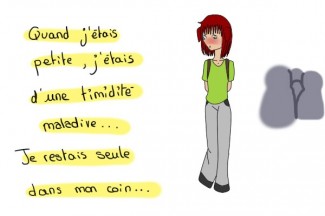 Quand j'étais
petite, j'étais
d'une timidité
maladive...
Je restais seule
dans mon coin...